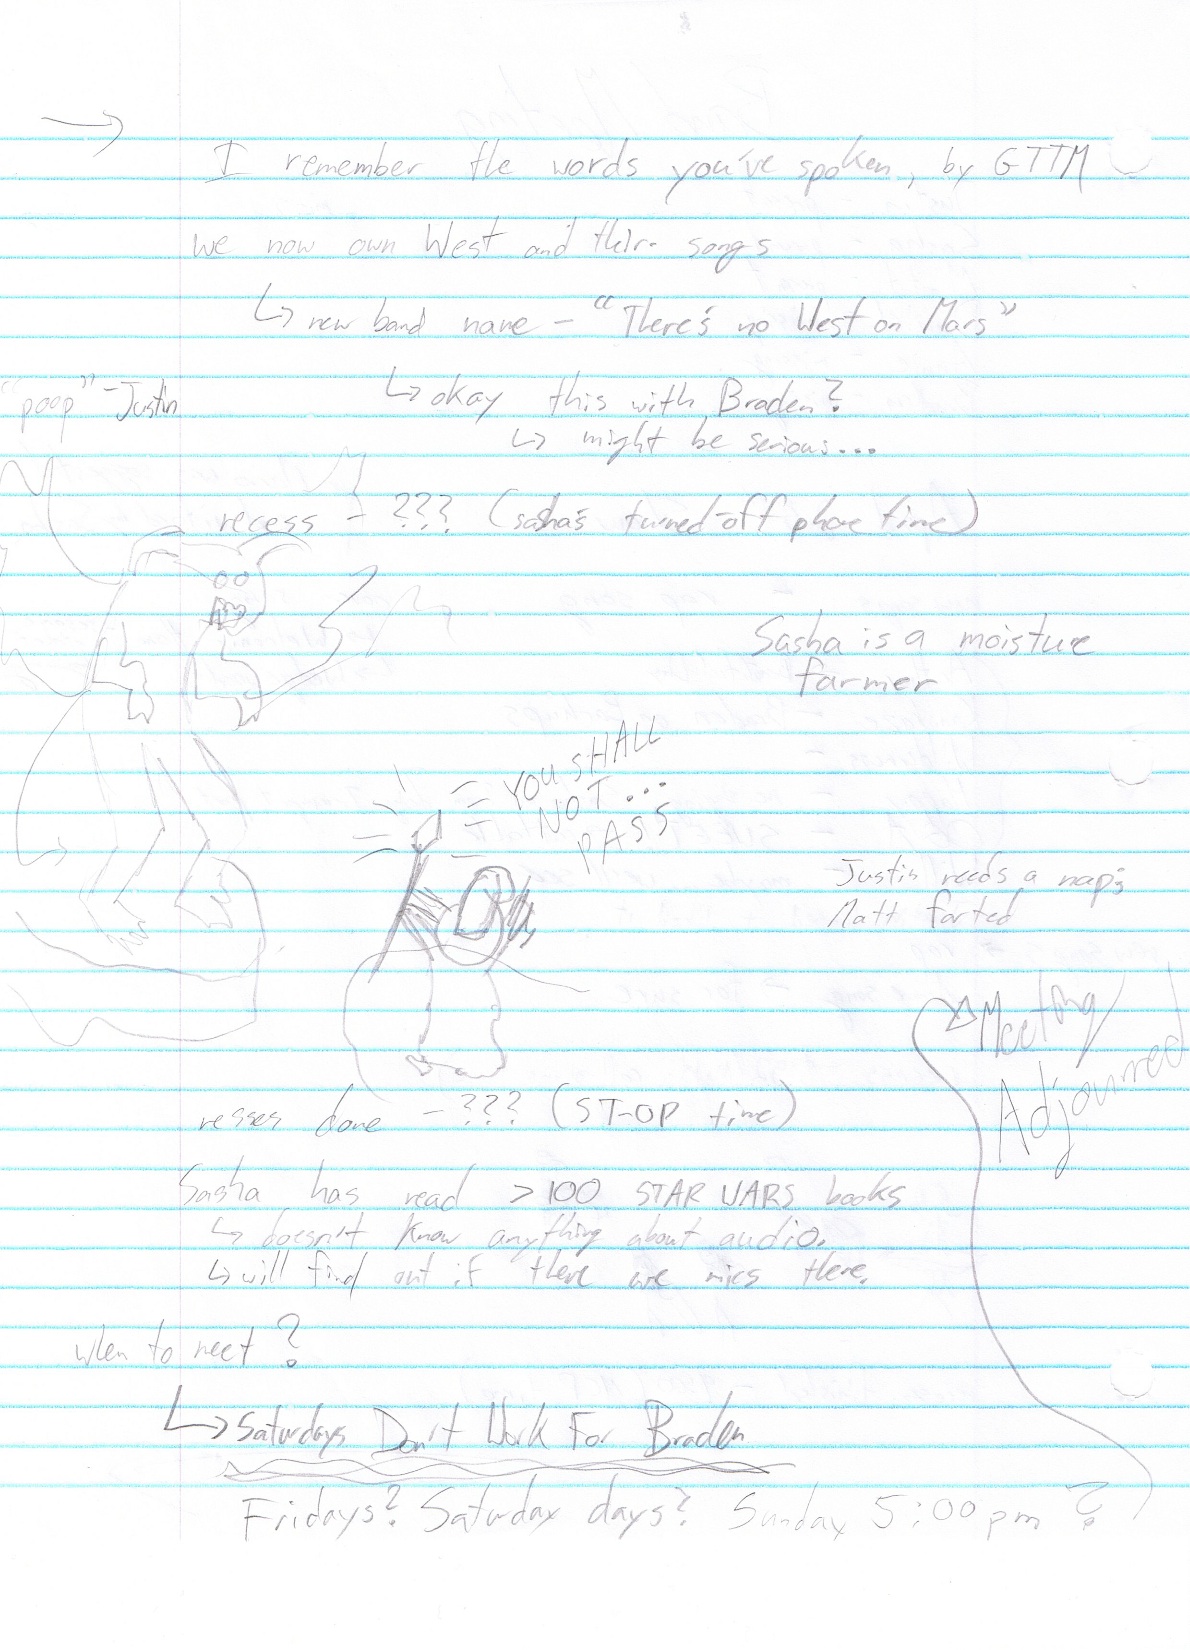 I remember the words you've spoken, by GTTM
we now own West and their songs
↳ new band name - "There's no West on Mars"
"poop" - Justin
↳ okay this with Braden?
↳ might be serious...
recess - ??? (sasha's turned-off phone time)
Sasha is a moisture
farmer
YOU SHALL
NOT ...
PASS
Justin needs a nap
Matt farted
Meeting
Adjourned
resses done - ??? (ST-OP time)
Sasha has read > 100 STAR WARS books
↳ doesn't know anything about audio.
↳ will find out if there are mics there.
when to meet?
↳ Saturdays Don't Work For Braden
Fridays? Saturday days? Sunday 5:00 pm?